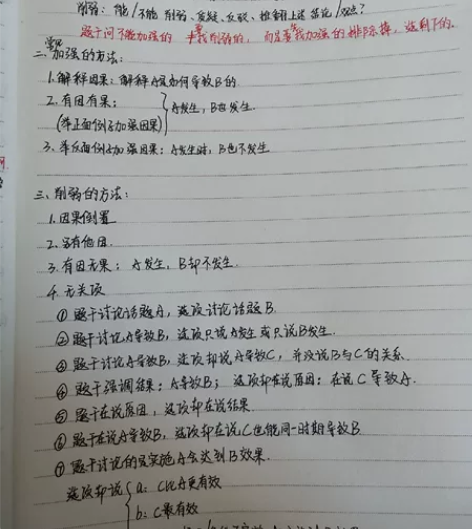 削弱：能/不能 削弱、质疑、反驳、推翻上述结论/观点？
题干问不能加强的 不是找削弱的，而是要找加强的排除掉，选剩下的。
二、加强的方法：
1.解释因果：解释A是如何导致B的
2.有因有果：
(举正面例子加强因果)
A发生，B也发生.
3.举反面例子加强因果：A发生时，B也不发生
三、削弱的方法：
1.因果倒置
2.另有他因.
3.有因无果：A发生，B却不发生.
4.无关项
①题干讨论话题A，选项讨论话题B.
②题干讨论A导致B，选项只说A发生或只说B发生.
③题干讨论A导致B，选项却说A导致C，并没说B与C的关系.
④题干强调结果：A导致B；选项却在说原因：在说C导致A.
⑤题干在说原因，选项却在说结果.
⑥题干在说A导致B，选项却在说C也能同一时期导致B
⑦题干讨论的是实施A会达到B效果.
选项却说
a：C比A更有效
b：C最有效